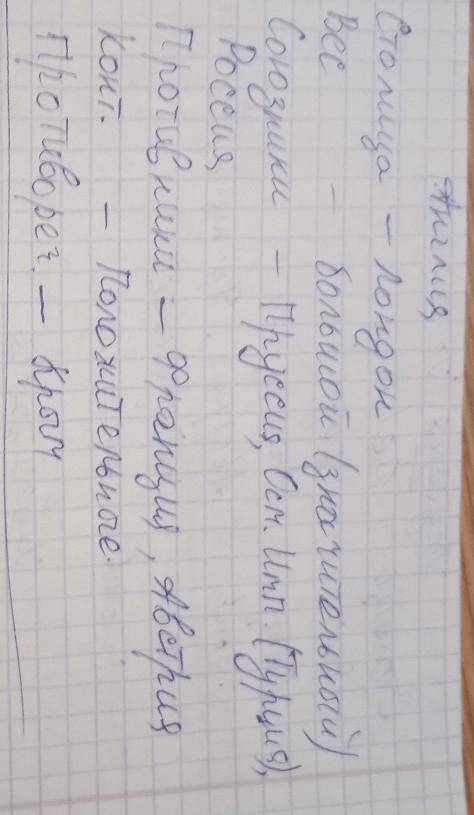 Англия
Столица - Лондон
Вес - большой (значительный)
Союзники - Пруссия, Осм. Имп. (Турция),
Россия
Противники - Франция, Австрия
Конт. - Положительные.
Противореч. - Крым